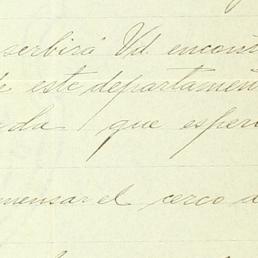 serbirá Vd
de este departamen
que esper
mensar el cerco